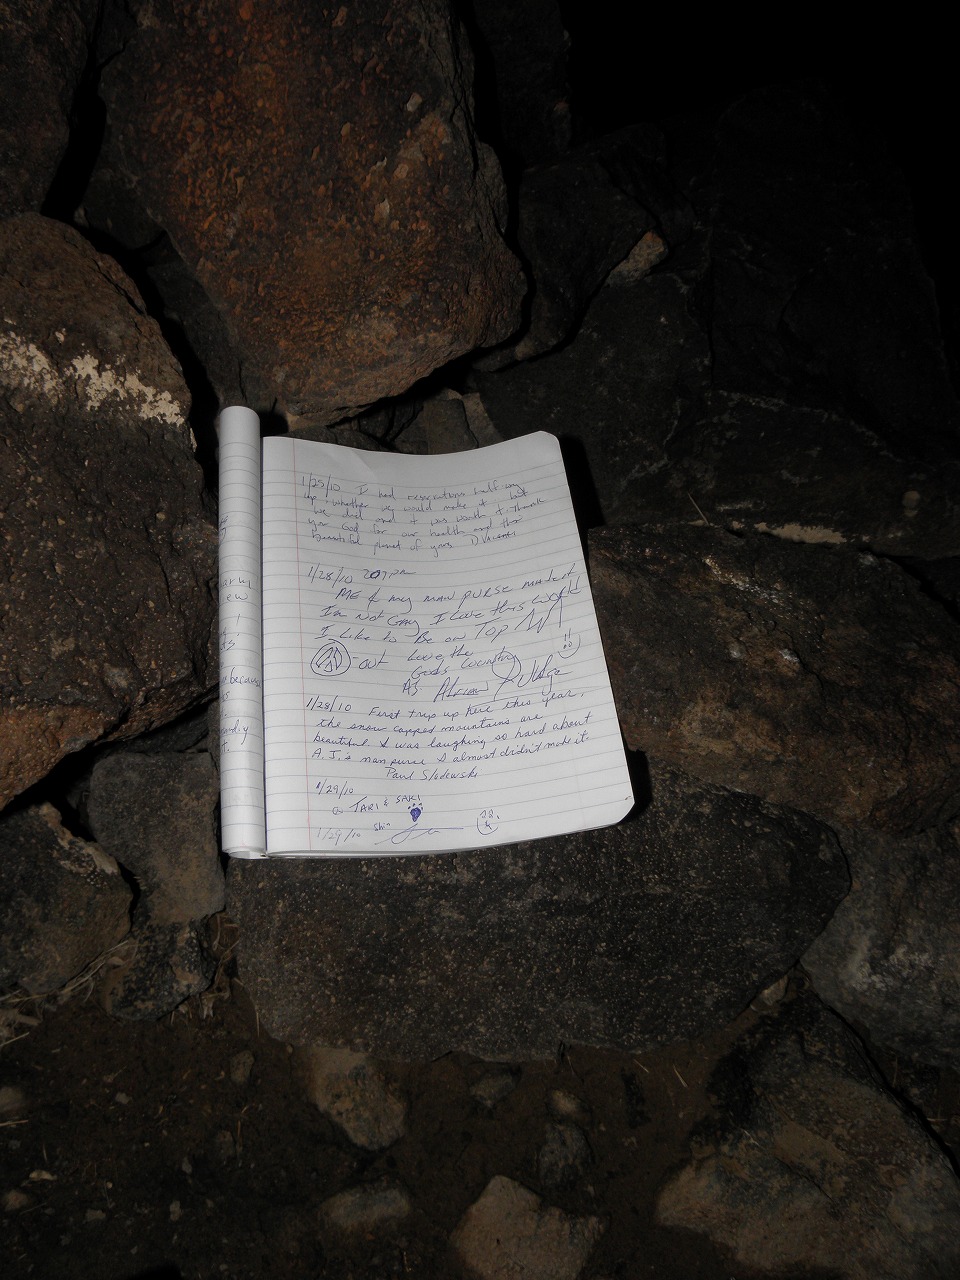 1/27/10 I had reservations half way
up, whether we would make it but
we did and it was worth it. Thank
you God for our health and this
beautiful planet of yours
1/28/10 207 PM
ME & my man purse made it
I'm Not Gay I Love this world
I Like to Be on Top
-out Love the
Gods Country
AJ.
1/28/10 First trip up here this year,
the snow capped mountains are
beautiful. I was laughing so hard about
A.J.'s man purse I almost didn't make it.
Paul
1/29/10
TARI & SAKI
1/29/10
ew
because